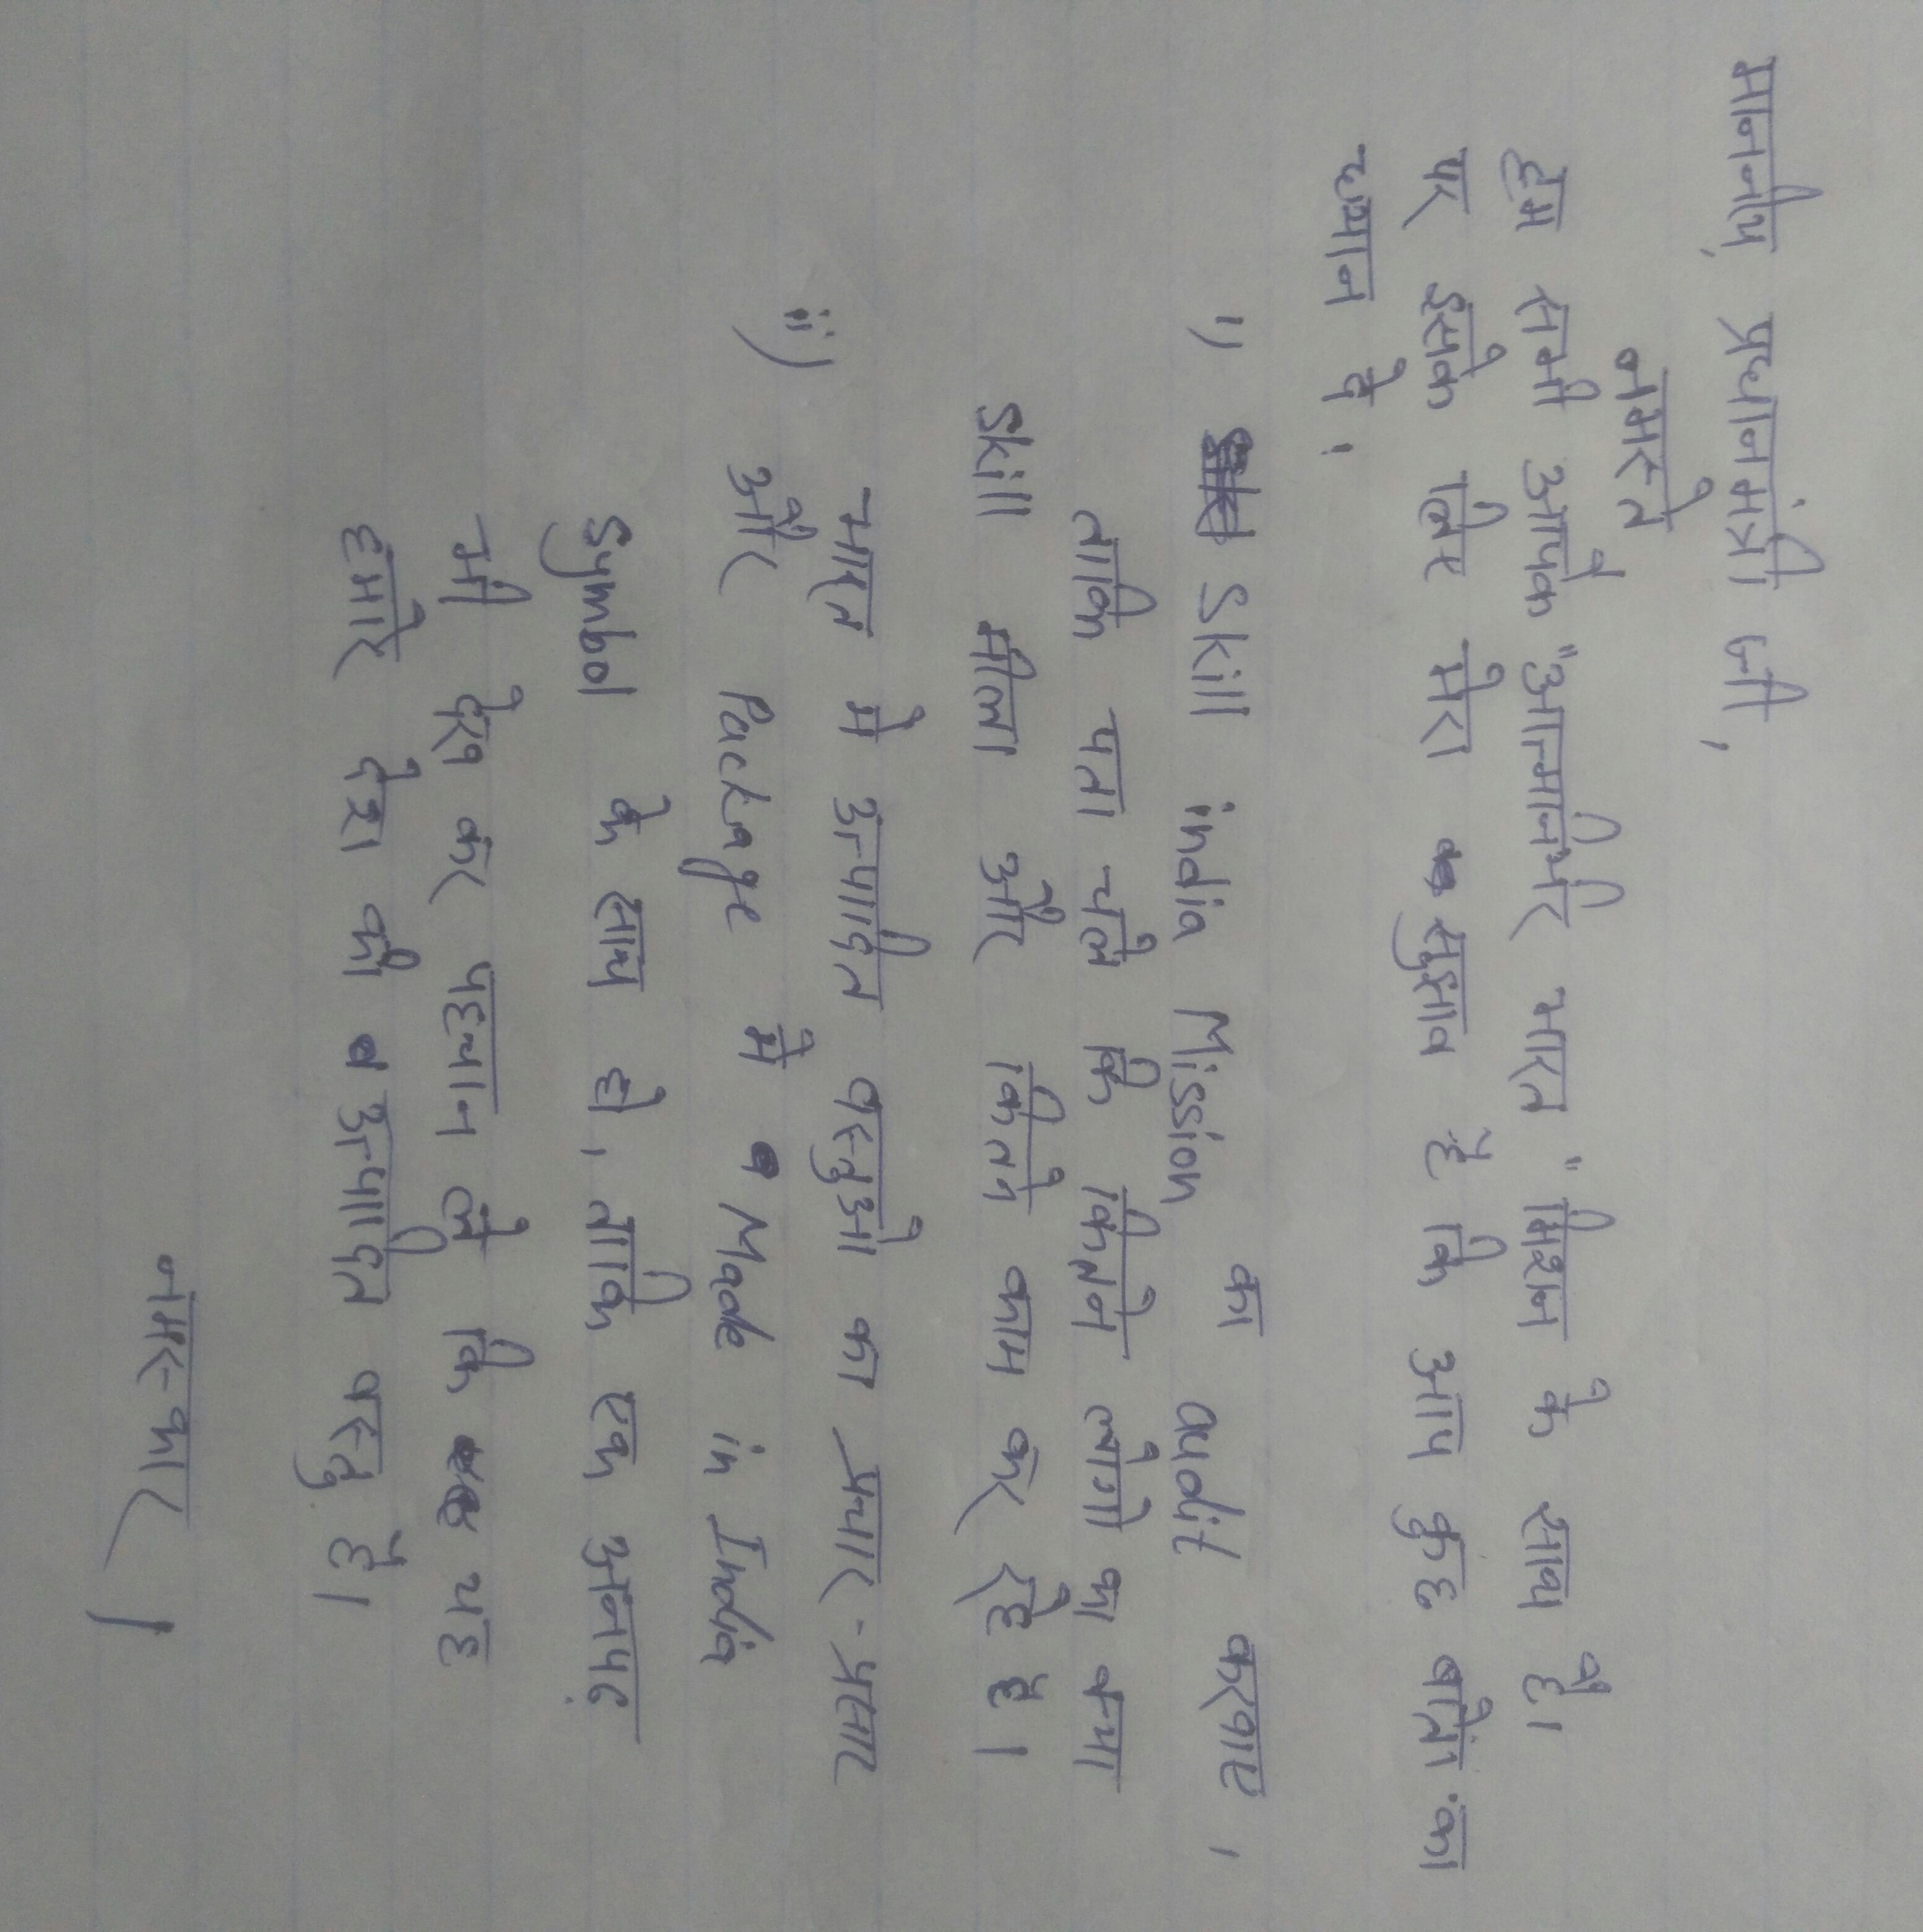 माननीय, प्रधानमंत्री जी,
नमस्ते
हम सभी आपके "आत्मनिर्भर भारत" मिशन के साथ है।
पर इसके लिए मेरा सुझाव है कि आप कुछ बातों का
ध्यान दे,
i) Skill india Mission का audit करवाए,
ताकि पता चले कि कितने लोगो का क्या
Skill मीला और कितने काम कर रहे है।
ii) भारत मे उत्पादित वस्तुओ का प्रचार-प्रसार
और Package मे Made in India
Symbol के साथ हो, ताकि एक अनपढ़
भी देख कर पहचान ले कि यह
हमारे देश की उत्पादित वस्तु है।
नमस्कार।